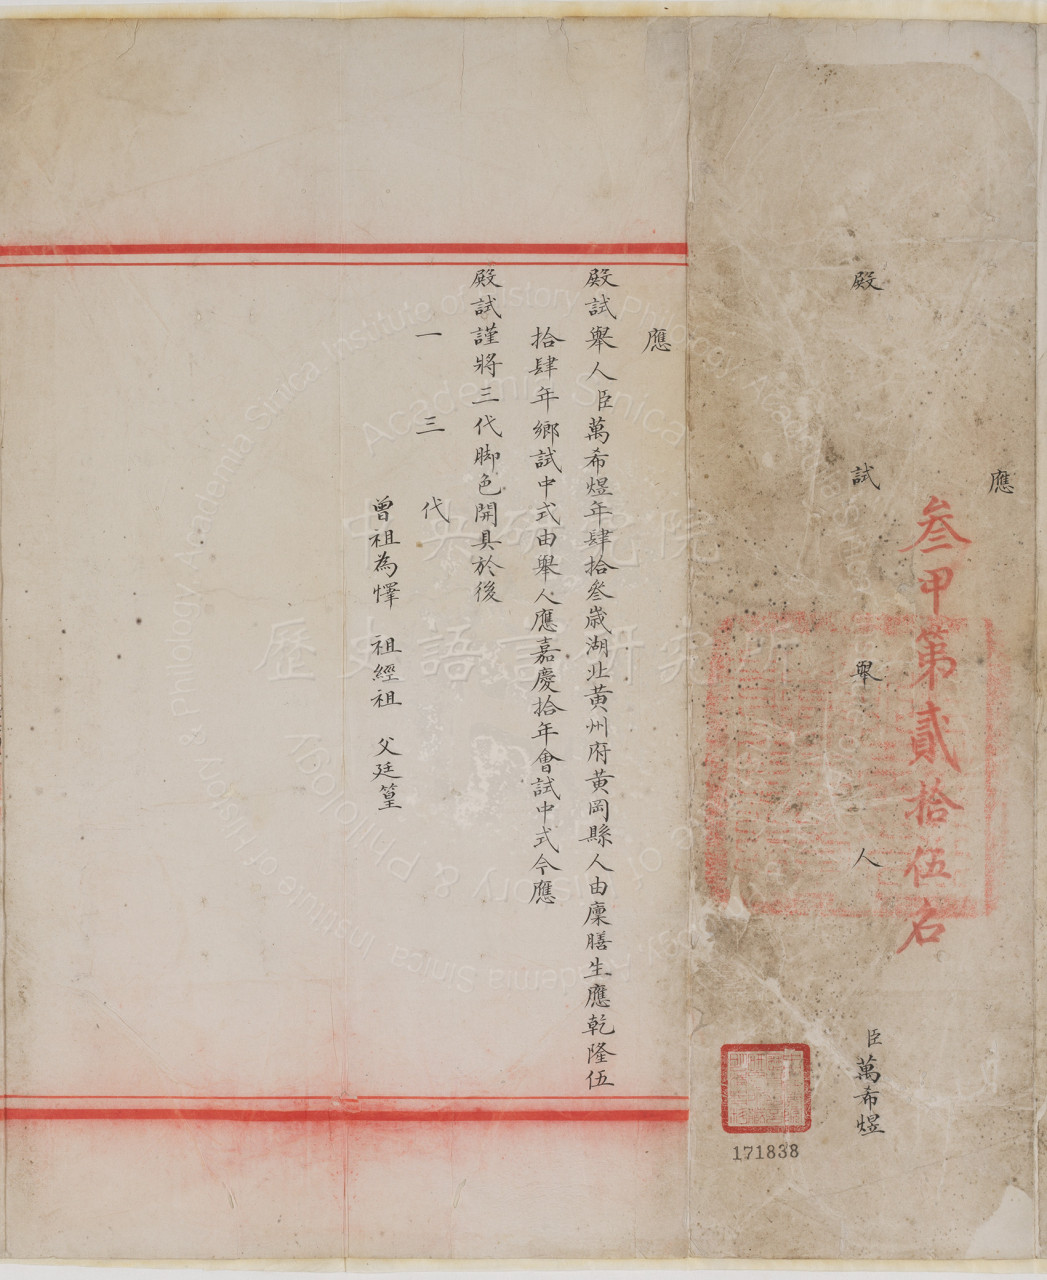 應
叁甲第貳拾伍名
殿試舉人
臣萬希煜
171838
應
殿試舉人臣萬希煜年肆拾叄歲湖北黃州府黃岡縣人由廩膳生應乾隆伍
拾肆年鄉試中式由舉人應嘉慶拾年會試中式今應
殿試謹將三代脚色開具於後
一三代
曾祖為懌 祖經祖 父廷篁
中央研究院
歷史語言研究所
Institute of History & Philology Academia Sinica